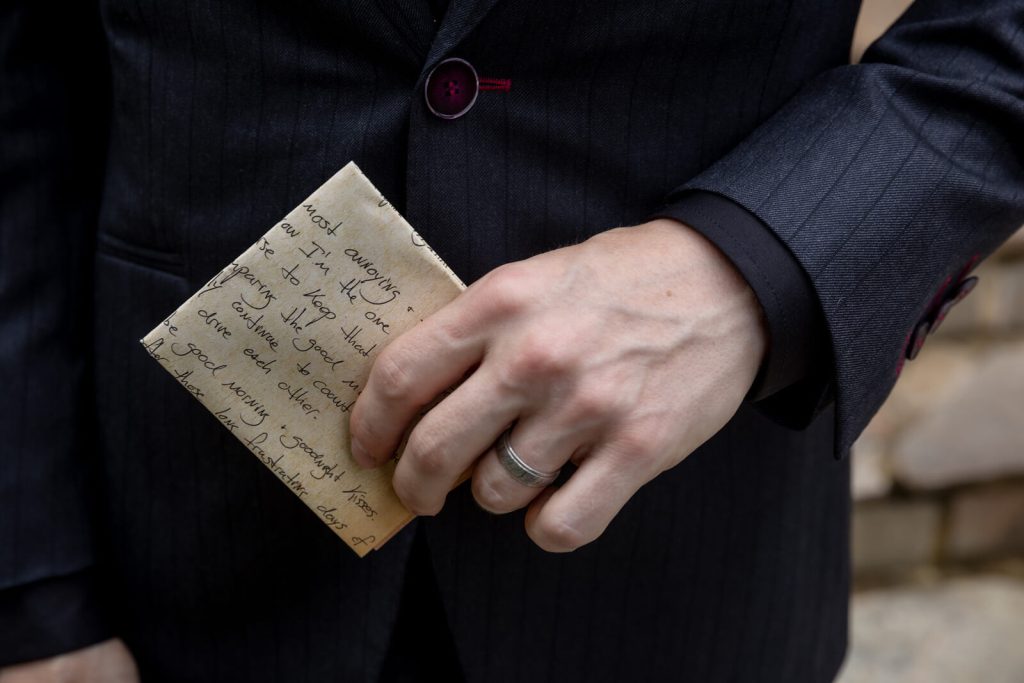 most annoying +
ow I'm the one
se to Keep that
paring the good
continue to
drive each other.
be good morning + goodnight kisses.
those long frustrating days of